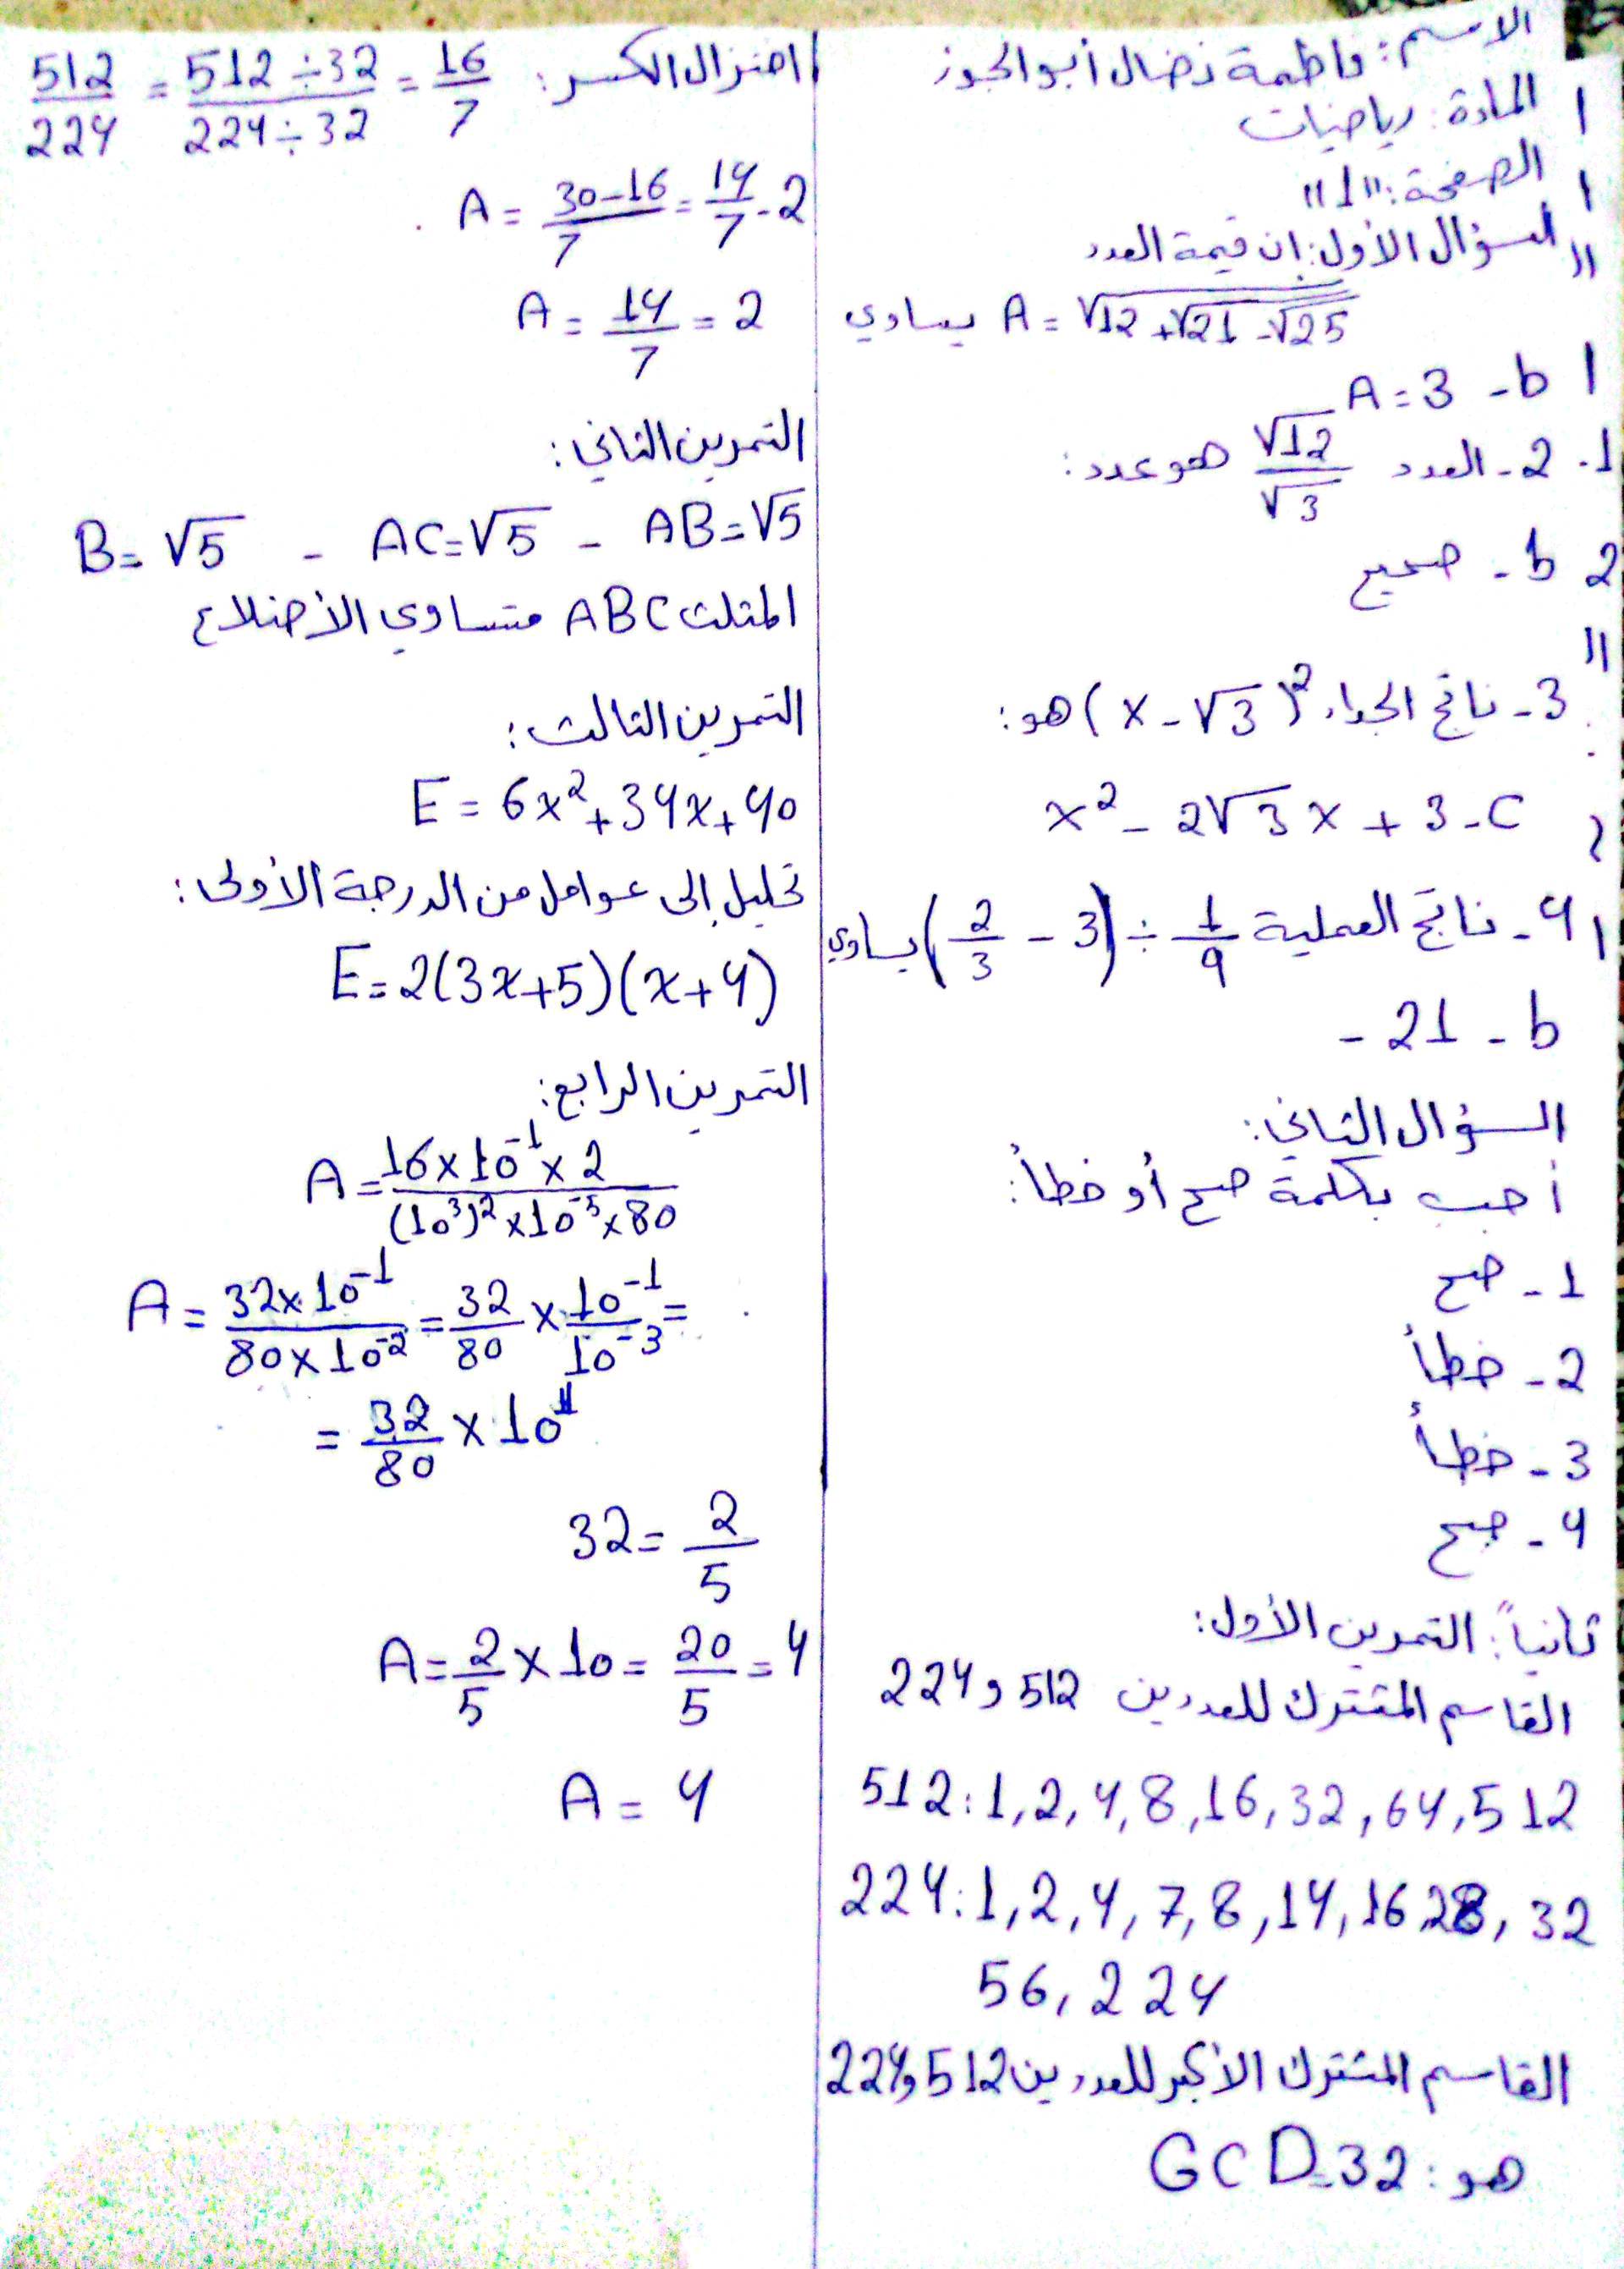 الاسم: فاطمة نضال أبو الجوز
المادة: رياضيات
الصفحة: "1"
السؤال الأول: ان قيمة العدد
A = √12 + √21 - √25 يساوي
A = 3 - b
2 - العدد √12/√3 هو عدد:
b - صحيح
3 - ناتج الجداء (x - √3)² هو:
x² - 2√3 x + 3 - C
4 - ناتج العملية 1/9 ÷ (2/3 - 3) يساوي
- 21 - b
السؤال الثاني:
أجب بكلمة صح أو خطأ:
1 - صح
2 - خطأ
3 - خطأ
4 - صح
ثانياً: التمرين الأول:
القاسم المشترك للعددين 512 و 224
512: 1, 2, 4, 8, 16, 32, 64, 512
224: 1, 2, 4, 7, 8, 14, 16 28, 32
56, 224
القاسم المشترك الأكبر للعددين 512 و 224
هو: GCD = 32
اختزال الكسر: 512/224 = 512÷32/224÷32 = 16/7
A = 30-16/7 = 14/7 - 2
A = 14/7 = 2
التمرين الثاني:
B = √5 - AC = √5 - AB = √5
المثلث ABC متساوي الأضلاع
التمرين الثالث:
E = 6x² + 34x + 40
تحليل إلى عوامل من الدرجة الأولى:
E = 2(3x+5)(x+4)
التمرين الرابع:
A = 16×10⁻¹×2/(10³)²×10⁻⁵×80
A = 32×10⁻¹/80×10⁻² = 32/80 × 10⁻¹/10⁻³ =
= 32/80 × 10¹
32 = 2/5
A = 2/5 × 10 = 20/5 = 4
A = 4